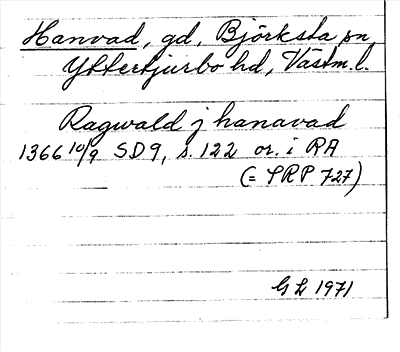 Hanvad, gd, Björksta sn
Yttertjurbo hd, Västm.l.
Ragwald j hanavad
1366 10/9 SD9, s. 122 or. i RA
(= SRP 727)
GL 1971